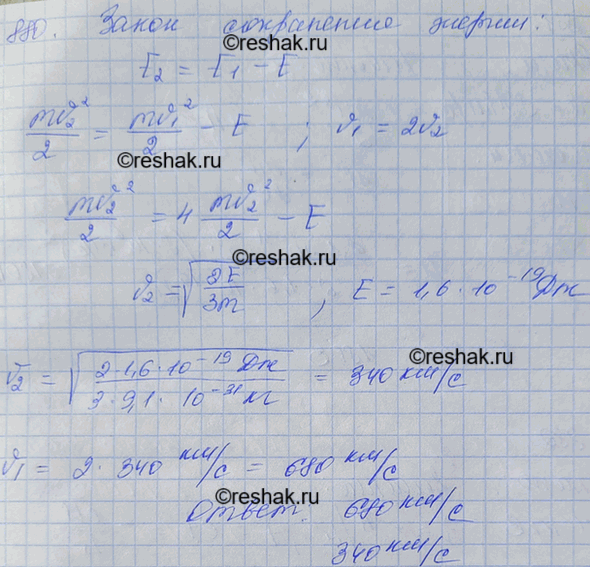 880. Закон сохранения энергии:
©reshak.ru
E₂ = E₁ − E
mv₂²/2 = mv₁²/2 − E ; v₁ = 2v₂
©reshak.ru
mv₂²/2 = 4 mv₂²/2 − E
©reshak.ru
v₂ = √(2E/3m) , E = 1,6 · 10⁻¹⁹ Дж
©reshak.ru
v₂ = √(2·1,6·10⁻¹⁹ Дж / 3·9,1·10⁻³¹ кг) = 340 км/с
©reshak.ru
v₁ = 2 · 340 км/с = 680 км/с
©reshak.ru
Ответ: 680 км/с
©reshak.ru
340 км/с